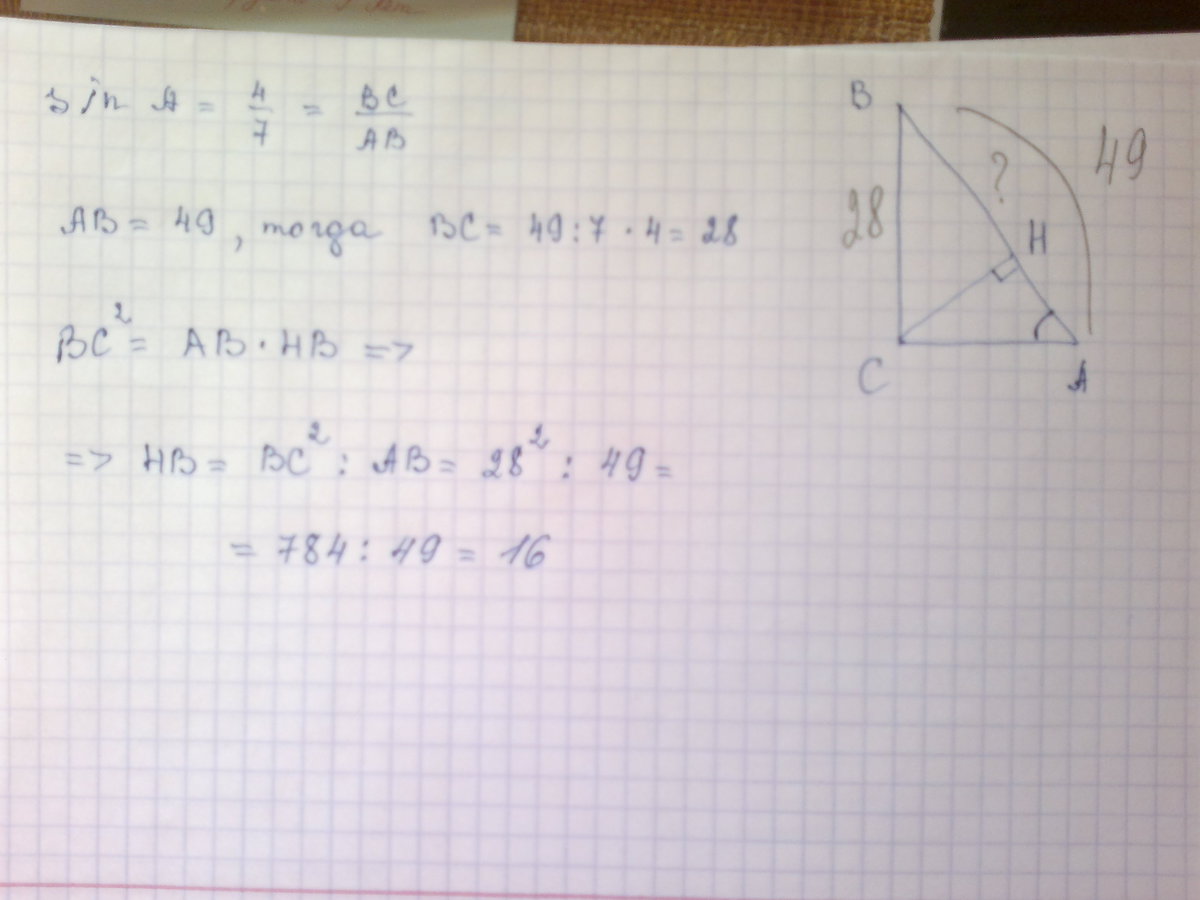 sin A = 4/7 = BC/AB
AB = 49, тогда BC = 49 : 7 · 4 = 28
BC² = AB · HB =>
=> HB = BC² : AB = 28² : 49 =
= 784 : 49 = 16
B
49
?
28
H
C
A